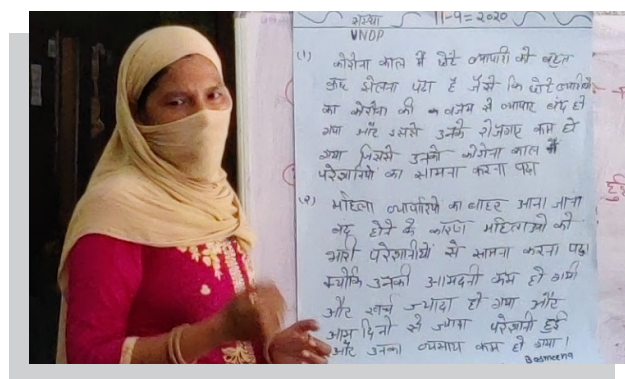 संस्था 11-9-2020
UNDP
(1) कोरोना काल में छोटे व्यापारी को बहुत
कष्ट झेलना पड़ा है जैसे कि छोटे व्यापारियो
का कोरोना की वजह से व्यापार बंद हो
गया और इससे उनके रोजगार कम हो
गया जिससे उनको कोरोना काल में
परेशानियों का सामना करना पड़ा
(2) महिला व्यापारियो का बाहर आना जाना
बंद होने के कारण महिलाओ को
भारी परेशानीयों से सामना करना पड़ा
क्योंकि उनकी आमदनी कम हो गयी
और खर्च ज्यादा हो गया और
आम दिनो से ज्यादा परेशानी हुई
और उनका व्यापार कम हो गया।
Basmeena